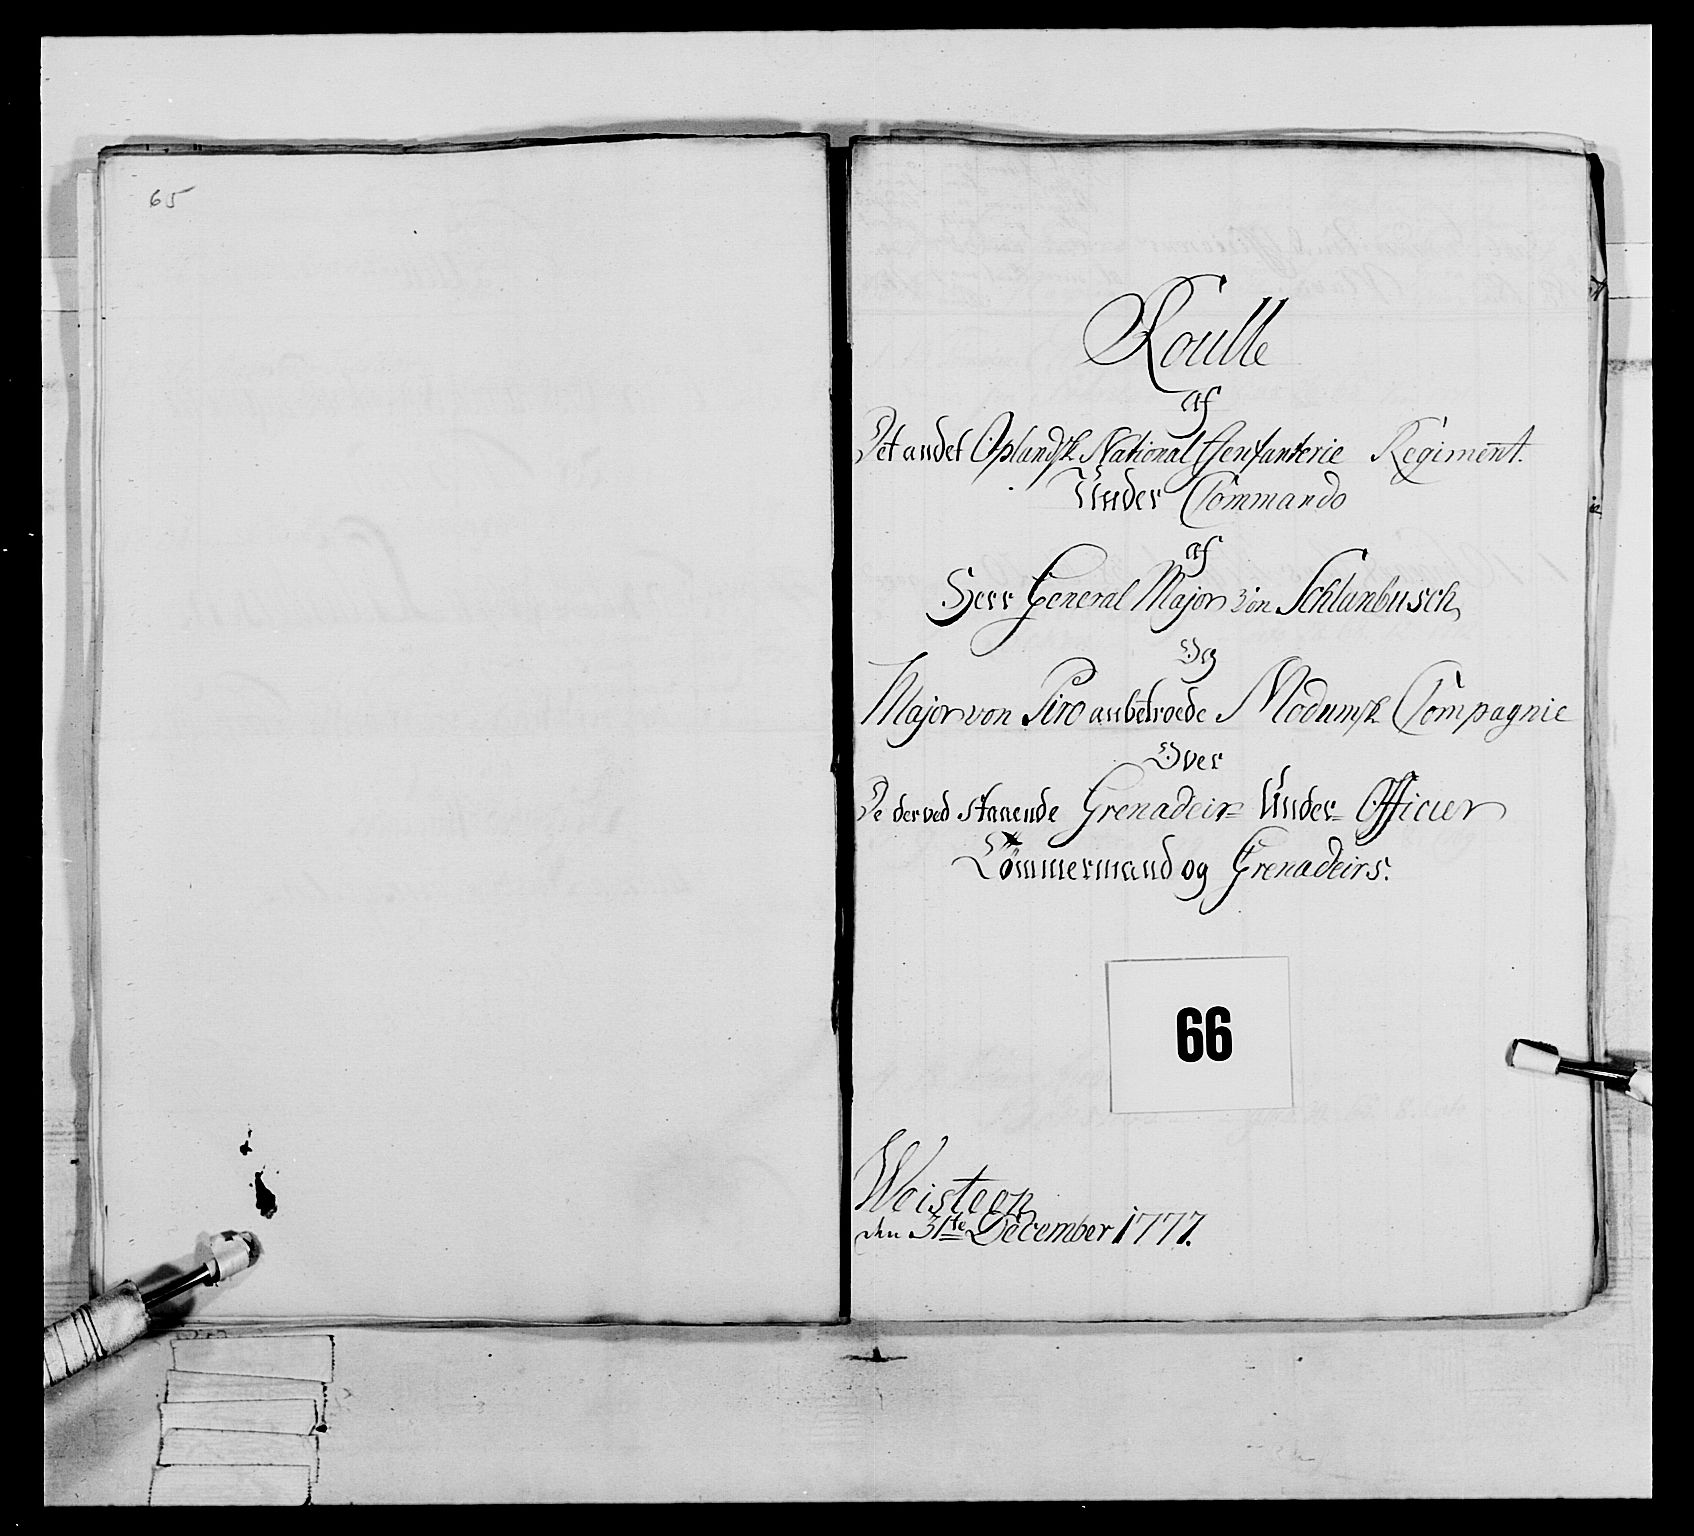 65
Roulle
af
Det andet Oplandsk National Genfanterie Regiment.
Under Commando
af
Herr General Major von Schlanbusch,
Og
Major von Piro anbetroede Modumsk Compagnie
Over
De derved staaende Grenadeir= Under= Officier
Tømmermand og Grenadeirs.
66
Weisteen
den 31te December 1777.